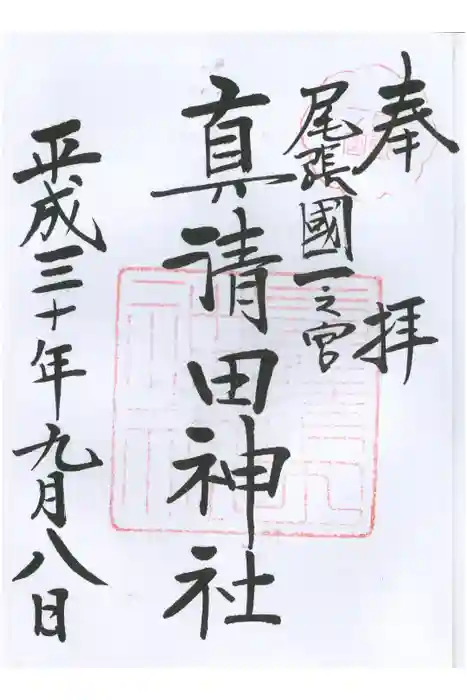 奉拝
尾張國一之宮
真清田神社
平成三十年九月八日